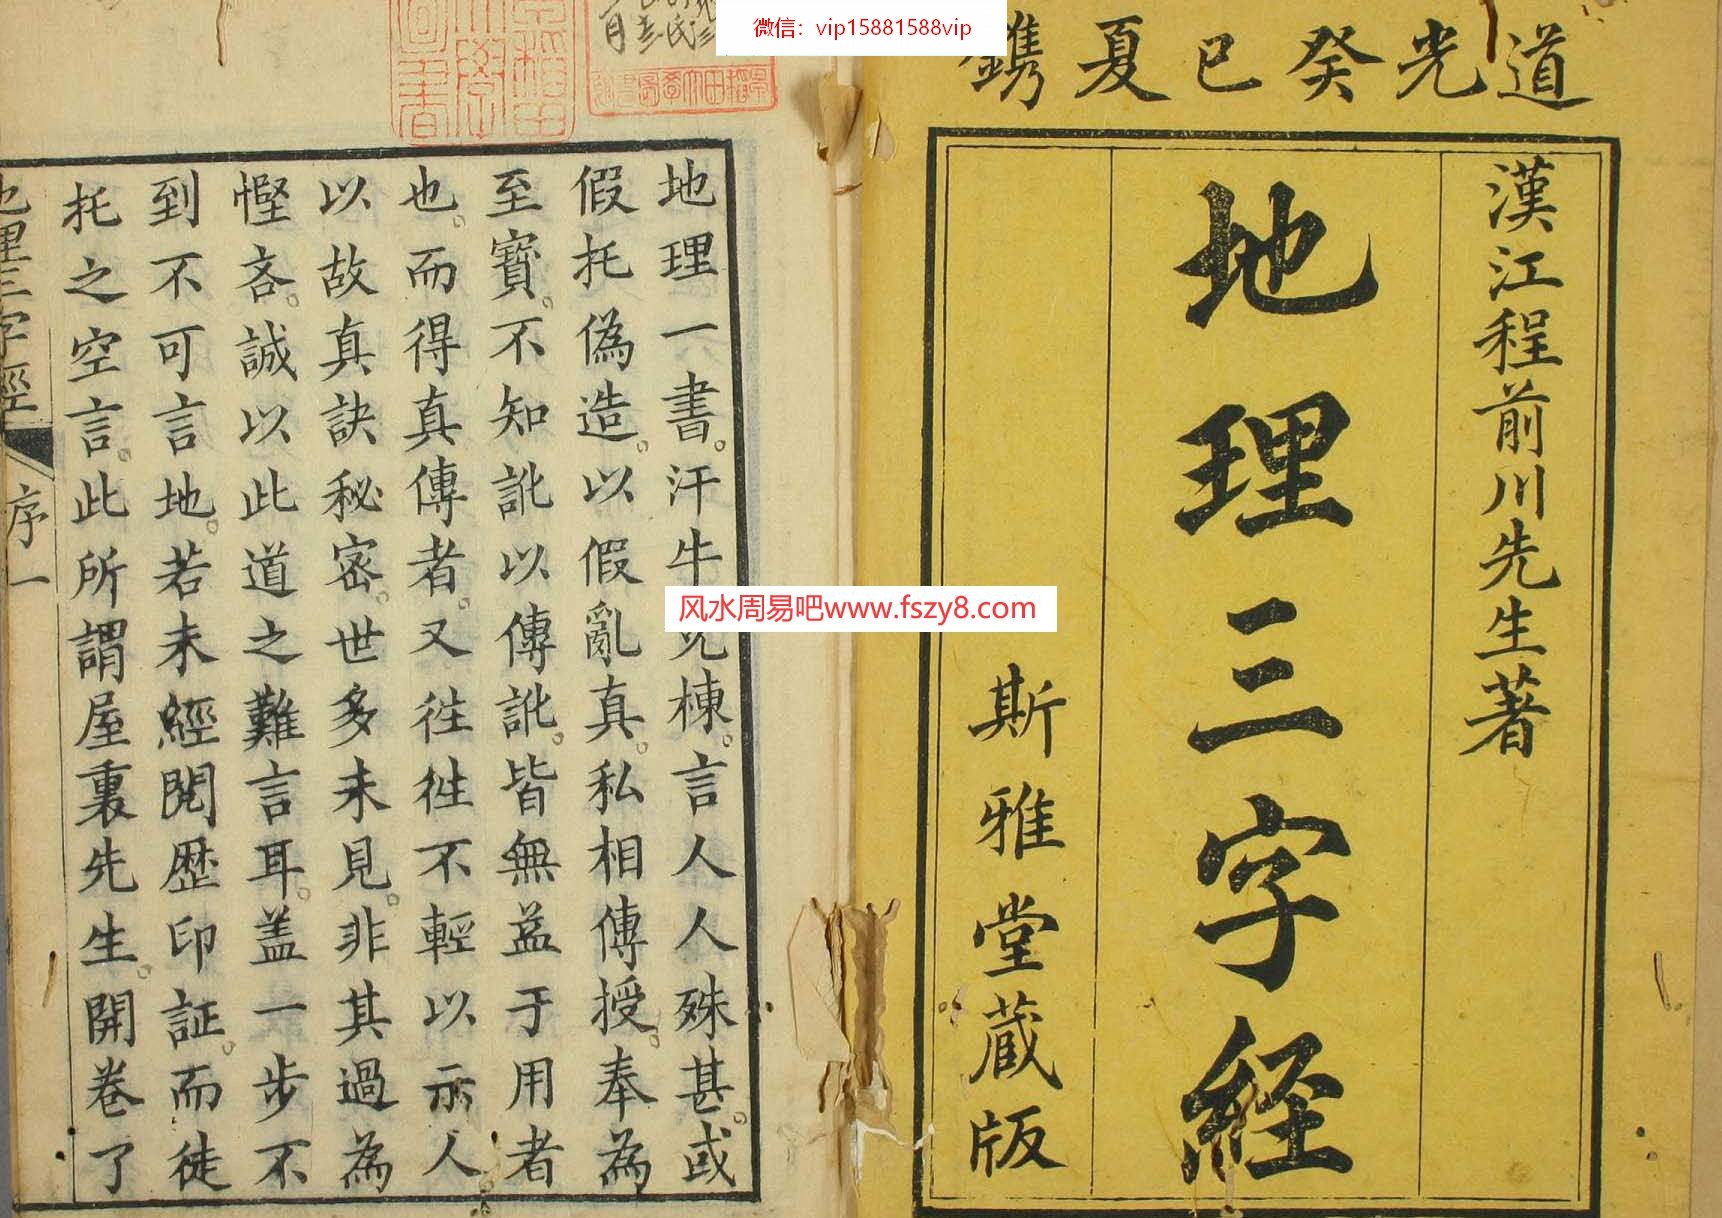 微信：vip15881588vip
道光癸巳夏鐫
漢江程前川先生著
地理三字經
斯雅堂蔵版
风水周易吧www.fszy8.com
地理一書。汗牛充棟。言人人殊甚。或
假托偽造。以假亂真。私相傳授。奉為
至寳。不知訛以傳訛。皆無益于用者
也。而得真傳者。又徃徃不輕以示人
以故真訣秘密。世多未見。非其過為
慳吝。誠以此道之難言耳。盖一步不
到不可言地。若未經閱歴印証。而徒
托之空言。此所謂屋裏先生。開卷了
地理三字經
序一